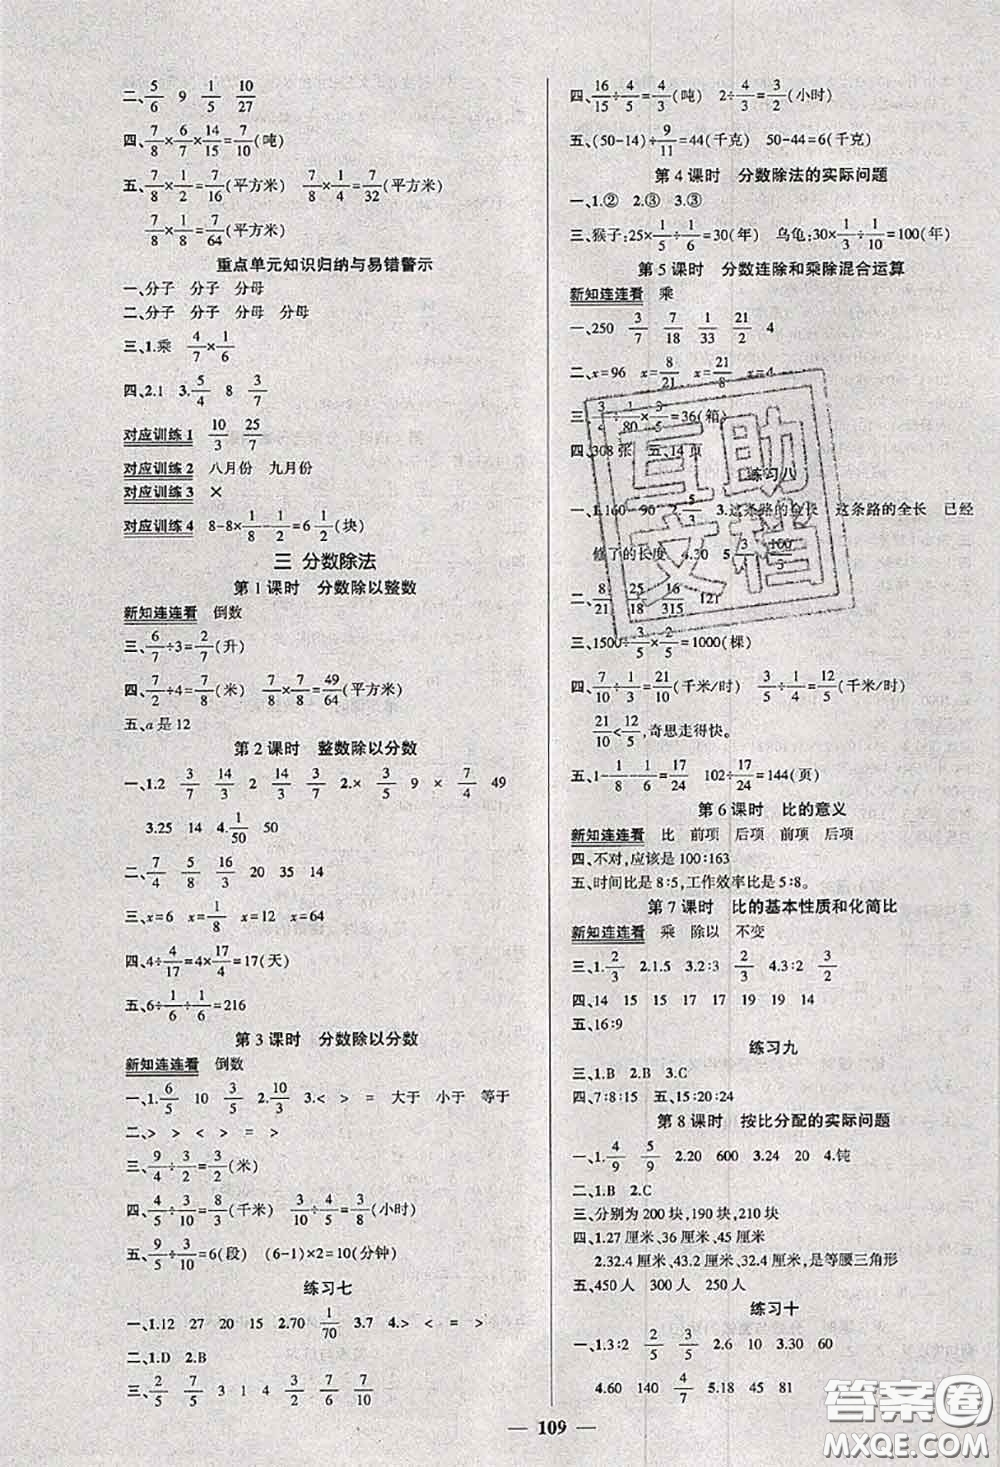 二、5/6 9 1/5 10/27
四、7/8×6/7×14/15=7/10(吨)
五、7/8×1/2=7/16(平方米) 7/8×1/4=7/32(平方米)
7/8×1/8=7/64(平方米)
重点单元知识归纳与易错警示
一、分子 分子 分母
二、分子 分子 分母 分母
三、1.乘 4/7×1/6
四、2.1 3.5/4 8 3/7
对应训练1 10/3 25/7
对应训练2 八月份 九月份
对应训练3 ×
对应训练4 8-8×1/8-1/2=6 1/2(块)
三 分数除法
第1课时 分数除以整数
新知连连看 倒数
三、6/7÷3=2/7(升)
四、7/2÷4=7/8(米) 7/8×7/8=49/64(平方米)
五、a是12
第2课时 整数除以分数
一、1.2 3/7 14/3 2 14/3 2.× 3/5 9 × 7/4 49
3.25 14 4.1/50 50
二、7/4 5/8 16/3 20 35 14
三、x=6 x=1/8 x=12 x=64
四、4÷4/17=4×17/4=17(天)
五、6÷1/6÷1/6=216
第3课时 分数除以分数
新知连连看 倒数
一、1.6/5 10 3/5 2.10/3 3.< > = 大于 小于 等于
二、> > < > = >
三、9/4÷3/2=3/2(米)
四、4/5÷3/10=8/3(千米) 3/10÷4/5=3/8(小时)
五、9/5÷3/10=6(段) (6-1)×2=10(分钟)
练习七
一、1.12 27 20 15 2.70 1/70 3.7 4.> < = >
二、1.D 2.B
三、2/5 7/5 3 1 4 3/2 7/6 7/10
四、16/15÷4/5=4/3(吨) 2÷4/3=3/2(小时)
五、(50-14)÷9/11=44(千克) 50-44=6(千克)
第4课时 分数除法的实际问题
一、1.② 2.③ 3.③
三、猴子:25×1/5÷1/6=30(年) 乌龟:30×1/3÷1/10=100(年)
第5课时 分数连除和乘除混合运算
新知连连看 乘
一、250 3/7 7/18 1/33 21/2 4
二、x=96 x=8/21 x=21/8 x=4
三、3/4÷1/80×3/5=36(箱)
四、308张 五、14页
练习八
一、1.160 90 2.5/3 3.这条路的全长 这条路的全长 已经
修了的长度 4.30 5.3/5 100/3
二、8/21 25/18 16/315 121
三、1500÷3/5×2/5=1000(棵)
四、7/10÷1/3=21/10(千米/时) 3/5÷1/4=12/5(千米/时)
21/10<12/5,奇思走得快。
五、1-1/8-1/6=17/24 102÷17/24=144(页)
第6课时 比的意义
新知连连看 比 前项 后项 前项 后项
四、不对,应该是100:163
五、时间比是8:5,工作效率比是5:8。
第7课时 比的基本性质和化简比
新知连连看 乘 除以 不变
三、1.2/3 2.1.5 3.2:3 2/3 4.3:2 3/2
四、14 15 15 17 19 17
五、16:9
练习九
三、1.B 2.B 3.C
四、7:8:15 五、15:20:24
第8课时 按比分配的实际问题
一、1.4/9 5/9 2.20 600 3.24 4.钝
二、1.B 2.C
三、分别为200块,190块,210块
四、1.27厘米,36厘米,45厘米
2.32.4厘米,43.2厘米,32.4厘米,是等腰三角形
五、450人 300人 250人
练习十
一、1.3:2 2/5 3/5 2.6 10 3.30 60
4.60 140 4/7 5.18 45 72
109
互助
文档
答案圈
MXQE.COM